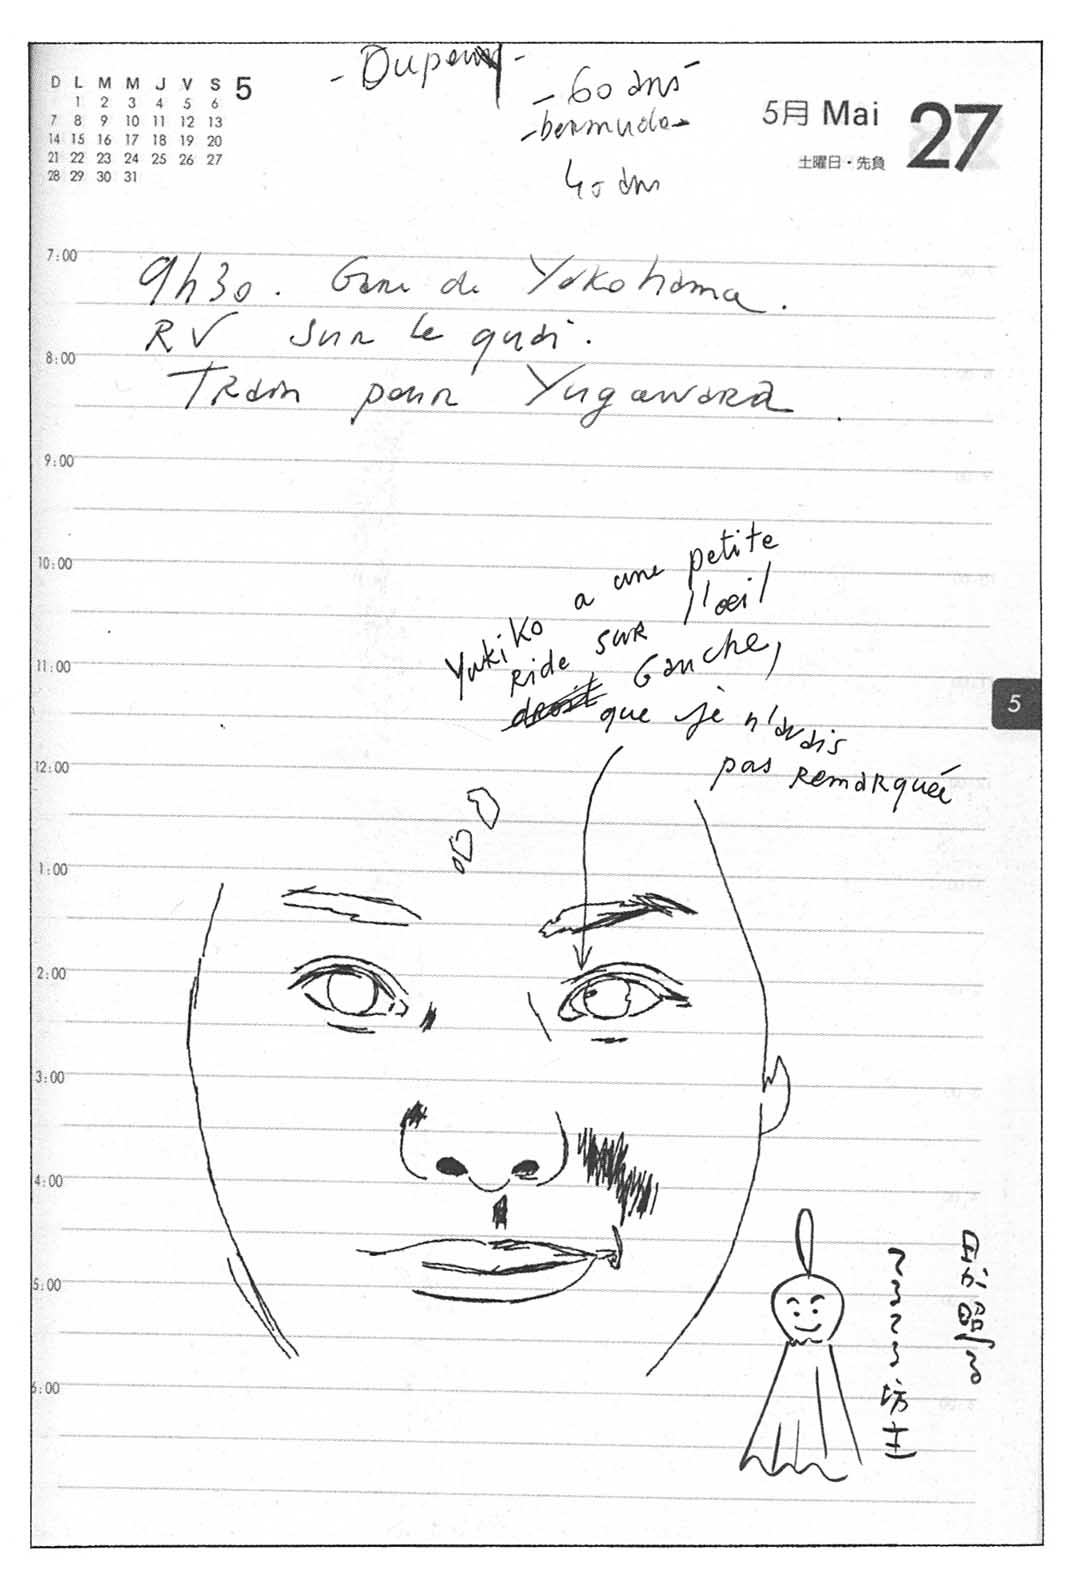 D L M M J V S 5
1 2 3 4 5 6
7 8 9 10 11 12 13
14 15 16 17 18 19 20
21 22 23 24 25 26 27
28 29 30 31
- 60 ans
- bermuda -
40 ans
5月 Mai 27
土曜日・先負
7:00
9h30. Gare de Yokohama.
RV sur le quai.
8:00
Train pour Yugawara.
9:00
10:00
Yukiko a une petite
ride sur l'œil
droit Gauche,
que je n'avais
pas remarquée
11:00
5
12:00
1:00
2:00
3:00
4:00
5:00
6:00
日が照る
てるてる坊主